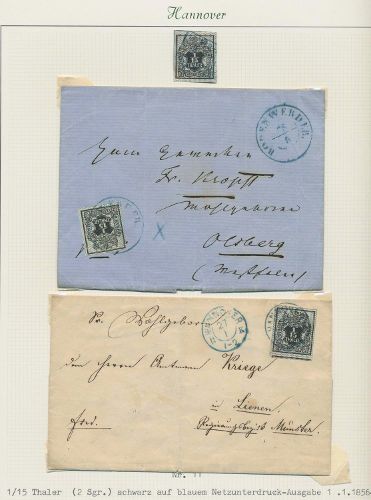 Hannover
BODENWERDER.
Herrn Gewerken
Fr. Kropff
Wohlgeboren
Olsberg
(Westfalen)
HANNOVER
27
1-2
Sr. Wohlgeboren
dem Herrn Amtmann Kriege
in Lienen
Regierungsbezirk Münster
fred.
Nr. 11
1/15 Thaler (2 Sgr.) schwarz auf blauem Netzunterdruck-Ausgabe 1 .1.1856